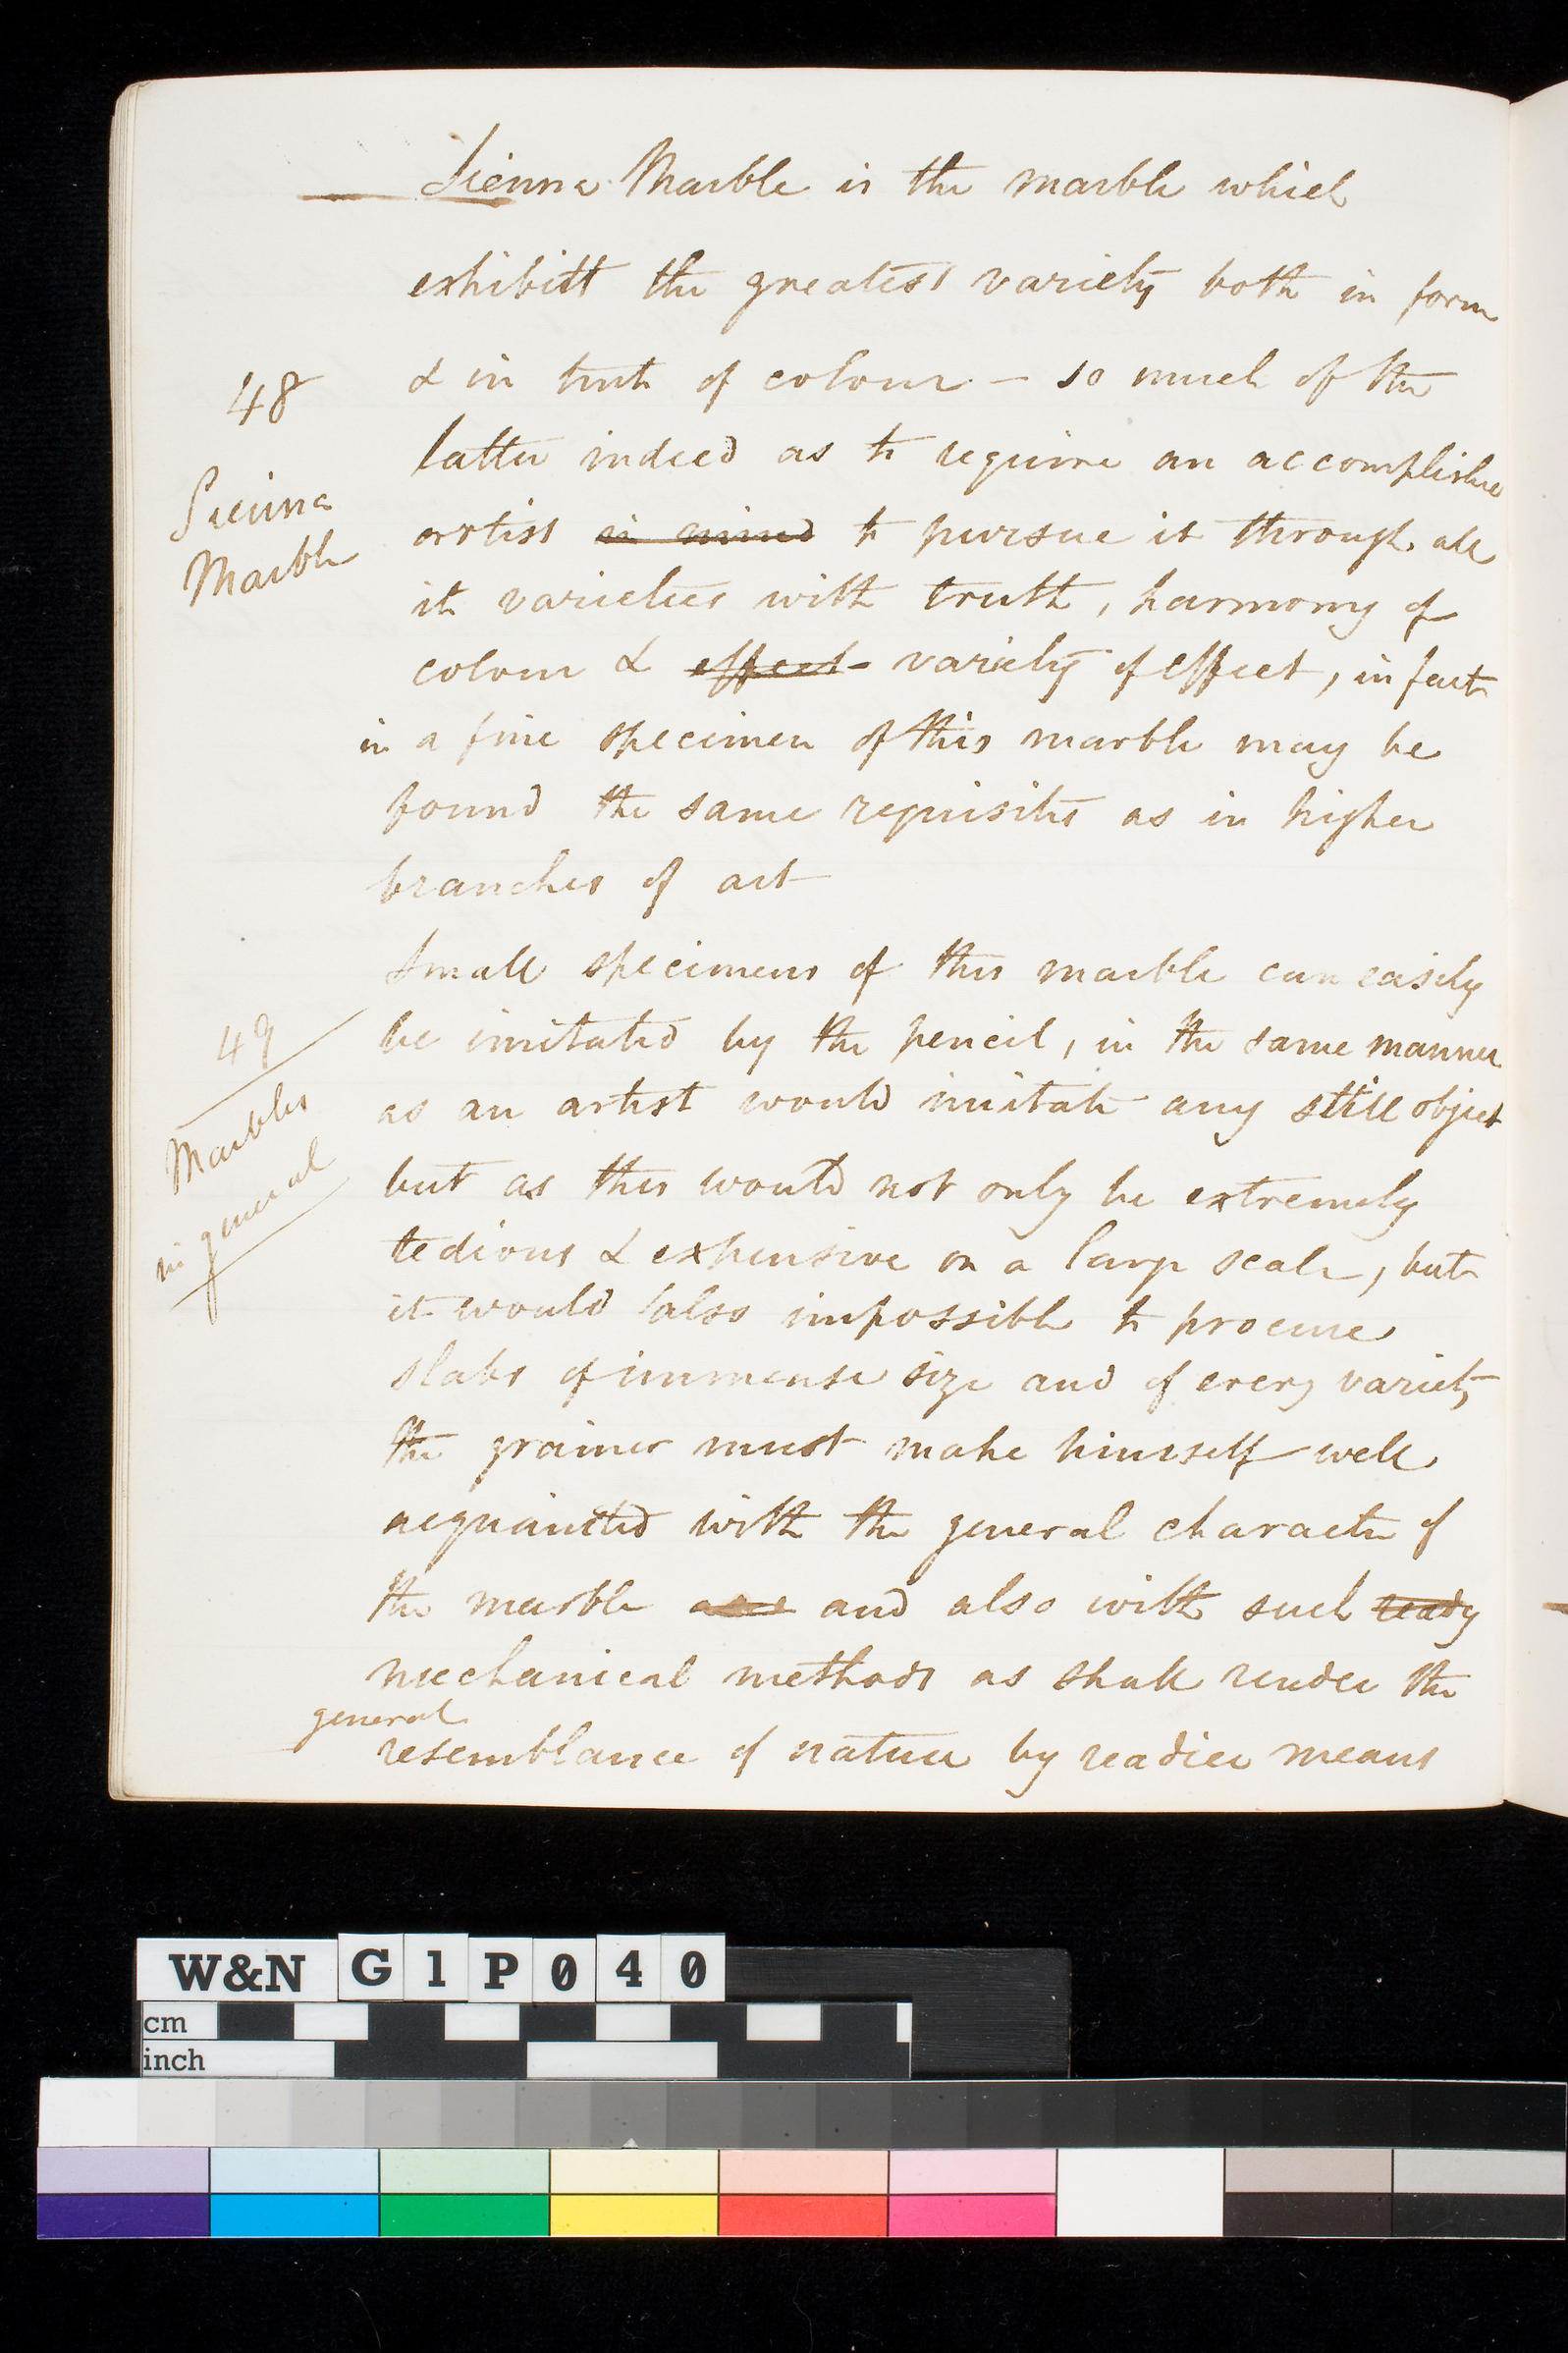 Sienna Marble is the marble which
exhibitt the greatest variety both in form
48
& in tint of colour – so much of the
latter indeed as to require an accomplishe
Sienna
Marble
artist in mind to pursue it through all
its varieties with truth, harmony of
colour & effect variety of effect, in fact
in a fine specimen of this marble may be
found the same requisites as in higher
branches of art
Small specimens of this marble can easily
49
Marbles
in general
be imitated by the pencil, in the same manner
as an artist would imitate any still object
but as this would not only be extremely
tedious & expensive on a large scale, but
it would also impossible to procure
slabs of immense size and of every variety
the grainer must make himself well
acquainted with the general character of
the marble and also with such ready
mechanical methods as shall render the
general
resemblance of nature by readier means
W&N G1P040
cm
inch